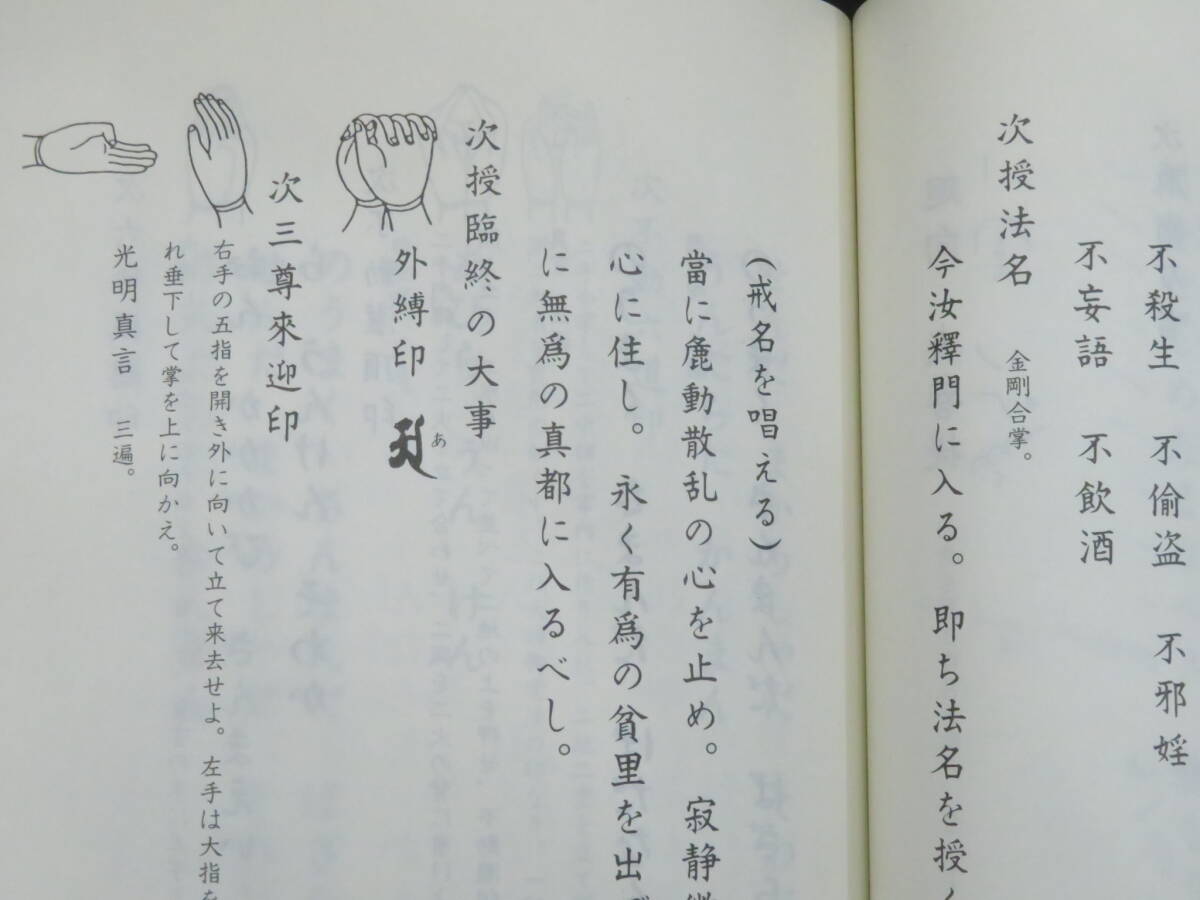 不殺生　不偷盗　不邪婬
不妄語　不飲酒
次授法名　金剛合掌。
今汝釋門に入る。即ち法名を授く
（戒名を唱える）
當に麁動散乱の心を止め。寂静
心に住し。永く有爲の貧里を出で
に無爲の真都に入るべし。
次授臨終の大事
外縛印　𑖀 あ
次三尊來迎印
右手の五指を開き外に向いて立て来去せよ。左手は大指を
れ垂下して掌を上に向かえ。
光明真言　三遍。